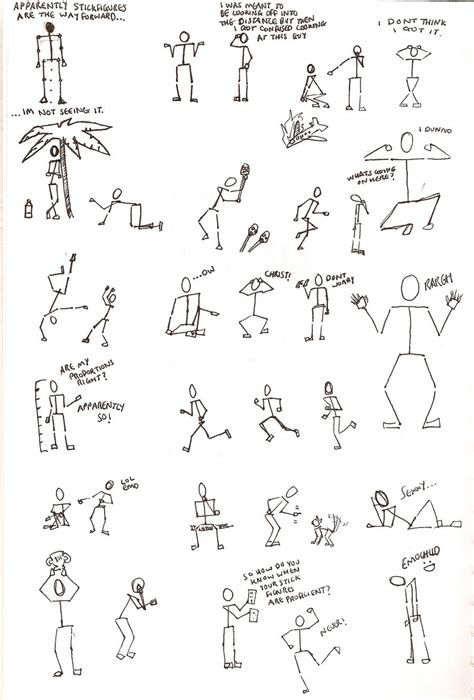 APPARENTLY STICKFIGURES
ARE THE WAY FORWARD...
I WAS MEANT TO
BE LOOKING OFF INTO
THE DISTANCE BUT THEN
I GOT CONFUSED LOOKING
AT THIS GUY
I DONT THINK
I GOT IT.
...IM NOT SEEING IT.
I DUNNO
WHATS GOING
ON HERE?
...OW
CHRIST!
DONT
WORRY
RARGH
ARE MY
PROPORTIONS
RIGHT?
APPARENTLY
SO!
LOL
EMO
SEXXY...
SO HOW DO YOU
KNOW WHEN
YOUR STICK
FIGURES
ARE PROFICIENT?
NEVER!
EMOCHILD